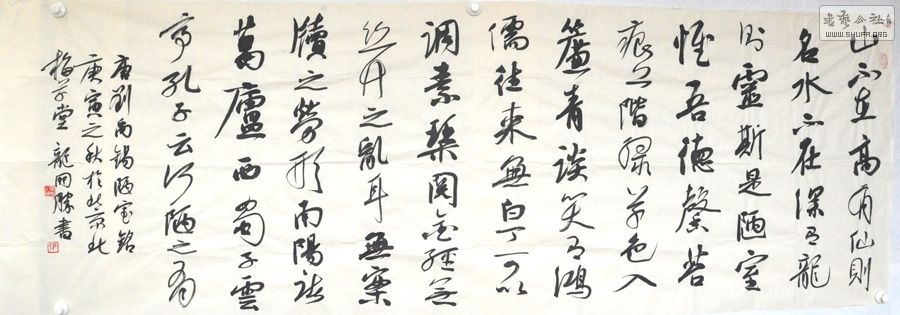 山不在高有仙則
名水不在深有龍
則靈斯是陋室
惟吾德馨苔
痕上階綠草色入
簾青談笑有鴻
儒往來無白丁可以
調素琴閱金經無
丝竹之亂耳無案
牘之勞形南陽諸
葛廬西蜀子雲
亭孔子云何陋之有
唐劉禹錫陋室銘
庚寅之秋於北京北
堂龍開勝書
書藝公社
WWW.SHUFA.ORG